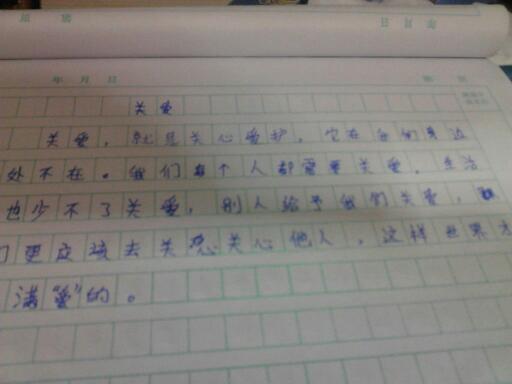 年 月 日
关爱
关爱，就是关心爱护。它在我们身边
处不在。我们每个人都需要关爱。生活
也少不了关爱，别人给予我们关爱，
们更应该去关心他人，这样世界才
满“爱”的。